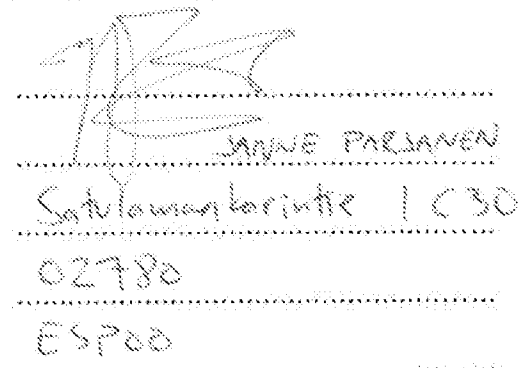 JANNE PARJANEN
Satulamankorintie 1 C 30
02780
ESPOO